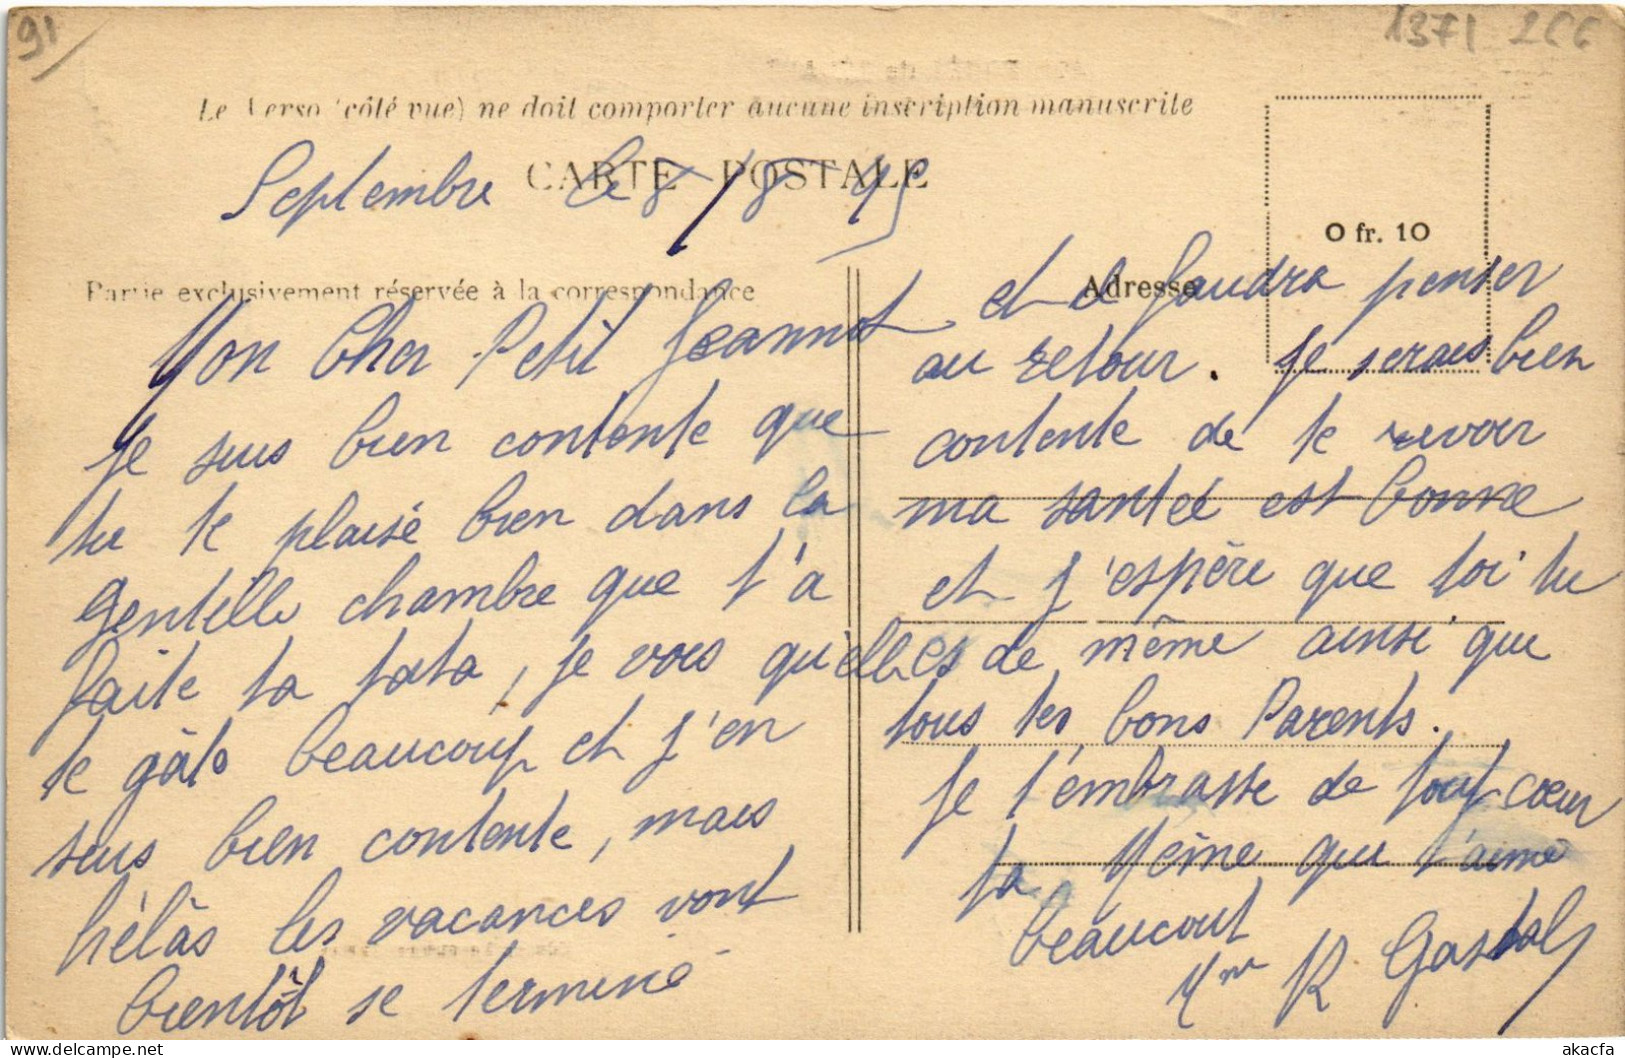 91
1371 266
Le Verso (côté vue) ne doit comporter aucune inscription manuscrite
CARTE POSTALE
Septembre le 8/8 45
0 fr. 10
Partie exclusivement réservée à la correspondance
Adresse
Mon Cher Petit Jeannot
Je suis bien contente que
tu te plaisé bien dans la
gentille chambre que t'a
faite ta tata, je vois qu'elles
te gâte beaucoup et j'en
suis bien contente, mais
hélàs les vacances vont
bientôt se terminé
et el faudra penser
au retour. Je serais bien
contente de te revoir
ma santée est bonne
et j'espère que toi tu
es de même ainsi que
tous tes bons Parents.
Je t'embrasse de tout cœur
ta Mémé qui t'aime
beaucout
Mme R Gastal
akacfa